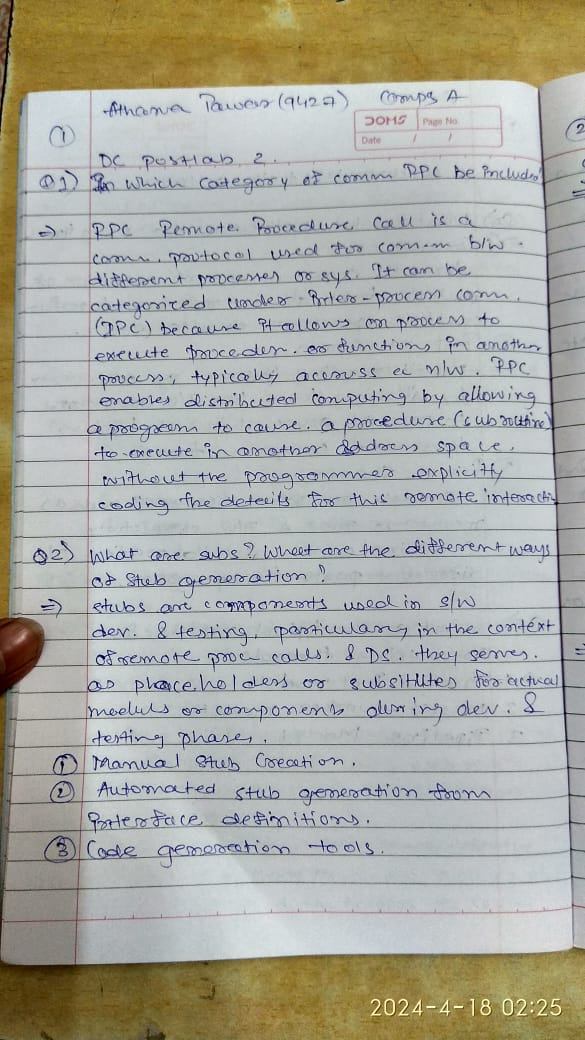 Atharva Pawar (9427) Comps A
DOMS Page No.
Date / /
①
DC Postlab 2.
Q1) In which category of comm RPC be included
⇒ RPC Remote Procedure Call is a
comm. protocol used for comm b/w
different processes or sys. It can be
categorized under Inter-process comm.
(IPC) because it allows on process to
execute proceder. or functions in another
process, typically accross a n/w. RPC
enables distributed computing by allowing
a program to cause a procedure (subroutine)
to execute in another address space,
without the programmer explicitly
coding the details for this remote interacti
Q2) What are subs? What are the different ways
of Stub generation?
⇒ stubs are components used in s/w
dev. & testing, particularly in the context
of remote proce calls. & DS. they serves.
as placeholders or subsitutes for actual
moduls or components during dev. &
testing phases.
① Manual Stub Creation.
② Automated stub generation from
Interface definitions.
③ Code generation tools.
2
2024-4-18 02:25